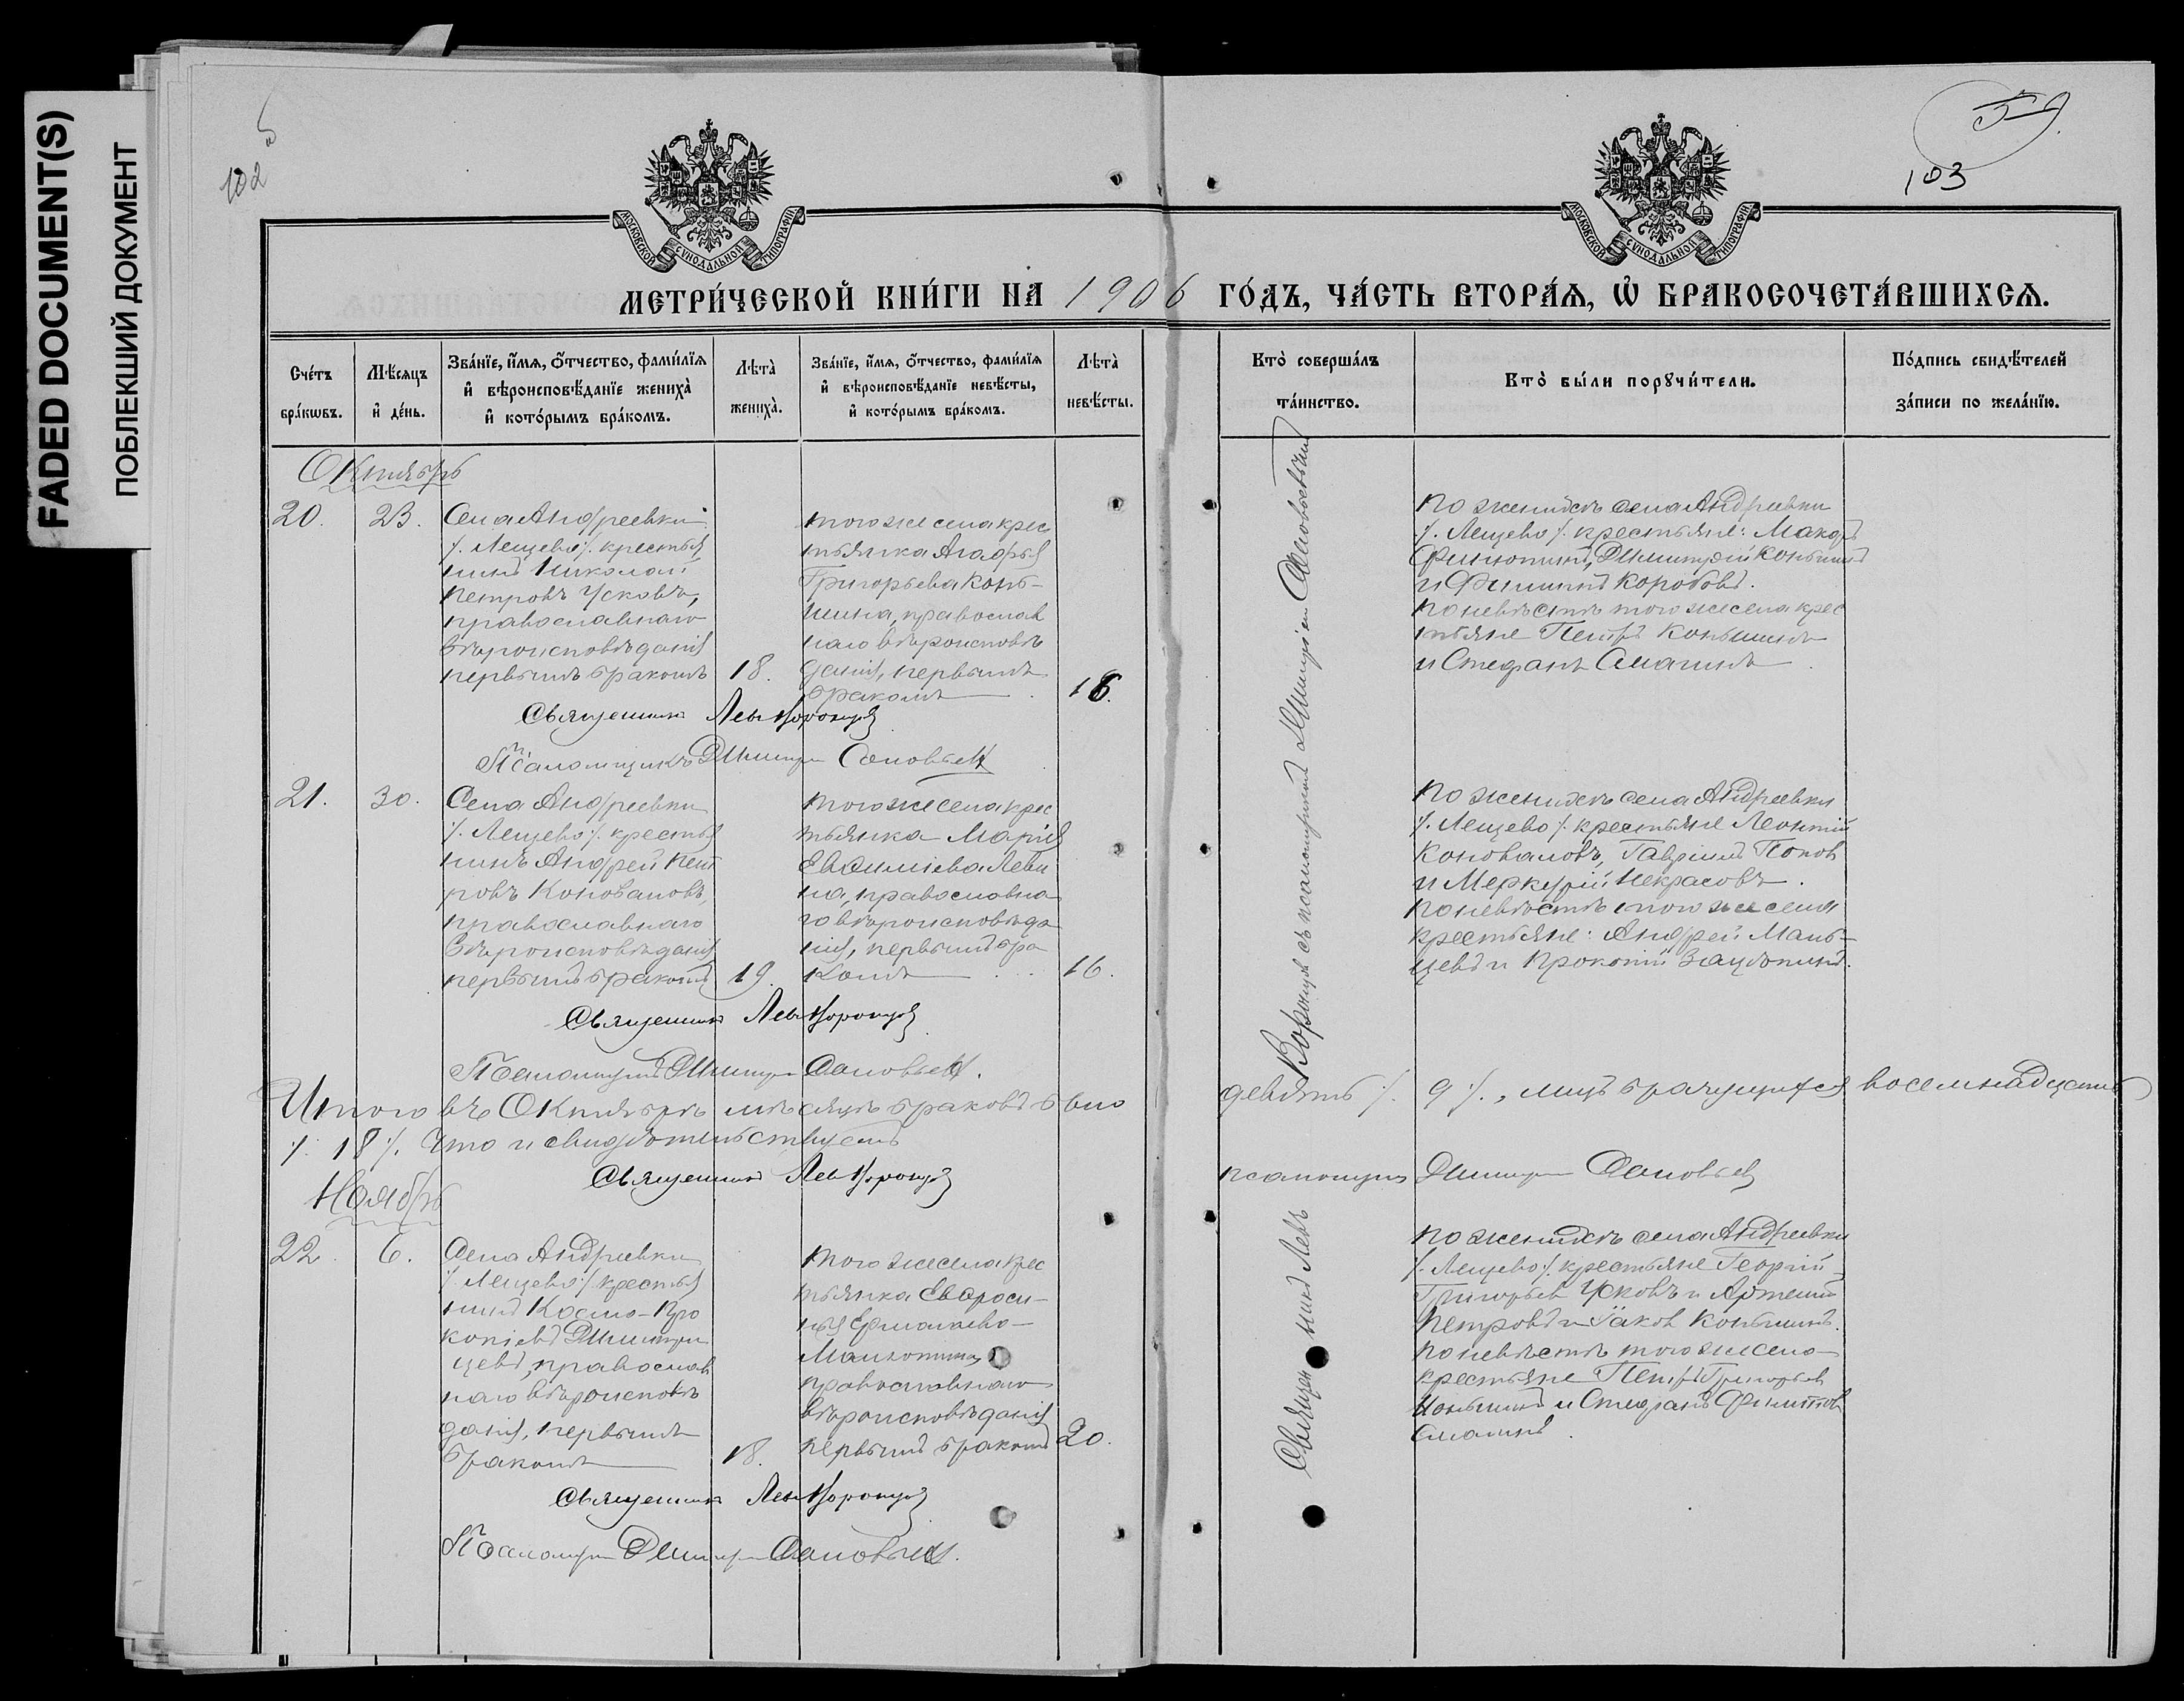 FADED DOCUMENT(S)
ПОБЛЕКШИЙ ДОКУМЕНТ
102
59
103
МОСКОВСКОЙ СѴНОДАЛЬНОЙ ТИПОГРАФІИ
МОСКОВСКОЙ СѴНОДАЛЬНОЙ ТИПОГРАФІИ
МЕТРИ́ЧЕСКОЙ КНИ́ГИ НА 1906 ГО́ДЪ, ЧА́СТЬ ВТОРА́Ѧ, Ѡ҆ БРАКОСОЧЕТА́ВШИХСѦ.
Сче́тъ
бра́кѡвъ.
Мѣ́сяцъ
и҆ де́нь.
Зва́нїе, и҆́мѧ, ѻ҆́тчество, фами́лїѧ
и҆ вѣроисповѣ́данїе жениха̀
и҆ кото́рымъ бра́комъ.
Лѣта̀
жениха̀.
Зва́нїе, и҆́мѧ, ѻ҆́тчество, фами́лїѧ
и҆ вѣроисповѣ́данїе невѣ́сты,
и҆ кото́рымъ бра́комъ.
Лѣта̀
невѣ́сты.
Кто̀ соверша́лъ
та́инство.
Кто̀ бы́ли порꙋчи́тели.
По́дпись свидѣ́телей
за́писи по жела́нїю.
Октябрь
20.
23.
Села Андреевки
/. Лещево /. крестья
нинъ Николай
Петровъ Усковъ,
православнаго
вѣроисповѣданія
первымъ бракомъ
18.
того же села крес
тьянка Агафья
Григорьева Конь-
шина, православ
наго вѣроисповѣ
данія, первымъ
бракомъ
16.
По женихѣ села Андреевки
/. Лещево /. крестьяне: Макаръ
Димитрій Коньшинъ
и Филиппъ Коробовъ.
по невѣстѣ того же села крес
тьяне Петръ Коньшинъ
и Стефанъ Смагинъ
Священникъ Левъ Воронцовъ
Псаломщикъ Димитрій Соловьевъ
21.
30.
Села Андреевки
/. Лещево /. крестья
нинъ Андрей Пет
ровъ Коноваловъ,
православнаго
вѣроисповѣданія
первымъ бракомъ
19.
того же села крес
тьянка Марія
Евѳиміева Леви
на, православна
го вѣроисповѣда
нія, первымъ бра
комъ
16.
По женихѣ села Андреевки
/. Лещево /. крестьяне Леонтій
Коноваловъ, Гавріилъ Попов
и Меркурій Некрасовъ.
по невѣстѣ того же села
крестьяне: Андрей Маль-
цевъ и Прокопій
Священникъ Левъ Воронцовъ
Псаломщикъ Димитрій Соловьевъ.
Итого въ Октябрѣ мѣсяцѣ браковъ было девять /. 9 /., лицъ брачущихся восемнадцать
/. 18 /. Что и свидѣтельствуемъ
Священникъ Левъ Воронцовъ псаломщикъ Димитрій Соловьевъ
Ноябрь
22.
6.
Села Андреевки
/. Лещево /. крестья
нинъ Косма Про
копіевъ Димитрі
цевъ, православ
наго вѣроисповѣ
данія, первымъ
бракомъ
18.
того же села крес
тьянка Евфроси-
нія Ермолаева
православнаго
вѣроисповѣданія
первымъ бракомъ
20.
По женихѣ села Андреевки
/. Лещево /. крестьяне Георгій
Григорьев Усковъ и Артемій
Петровъ и Іаков Коньшинъ.
по невѣстѣ того же села
крестьяне Петръ Григорьев
Коньшинъ и Стефанъ Филиппов
Смагинъ.
Священникъ Левъ Воронцовъ
Псаломщикъ Димитрій Соловьевъ.
Священникъ Левъ Воронцовъ съ псаломщикомъ Димитріемъ Соловьевымъ